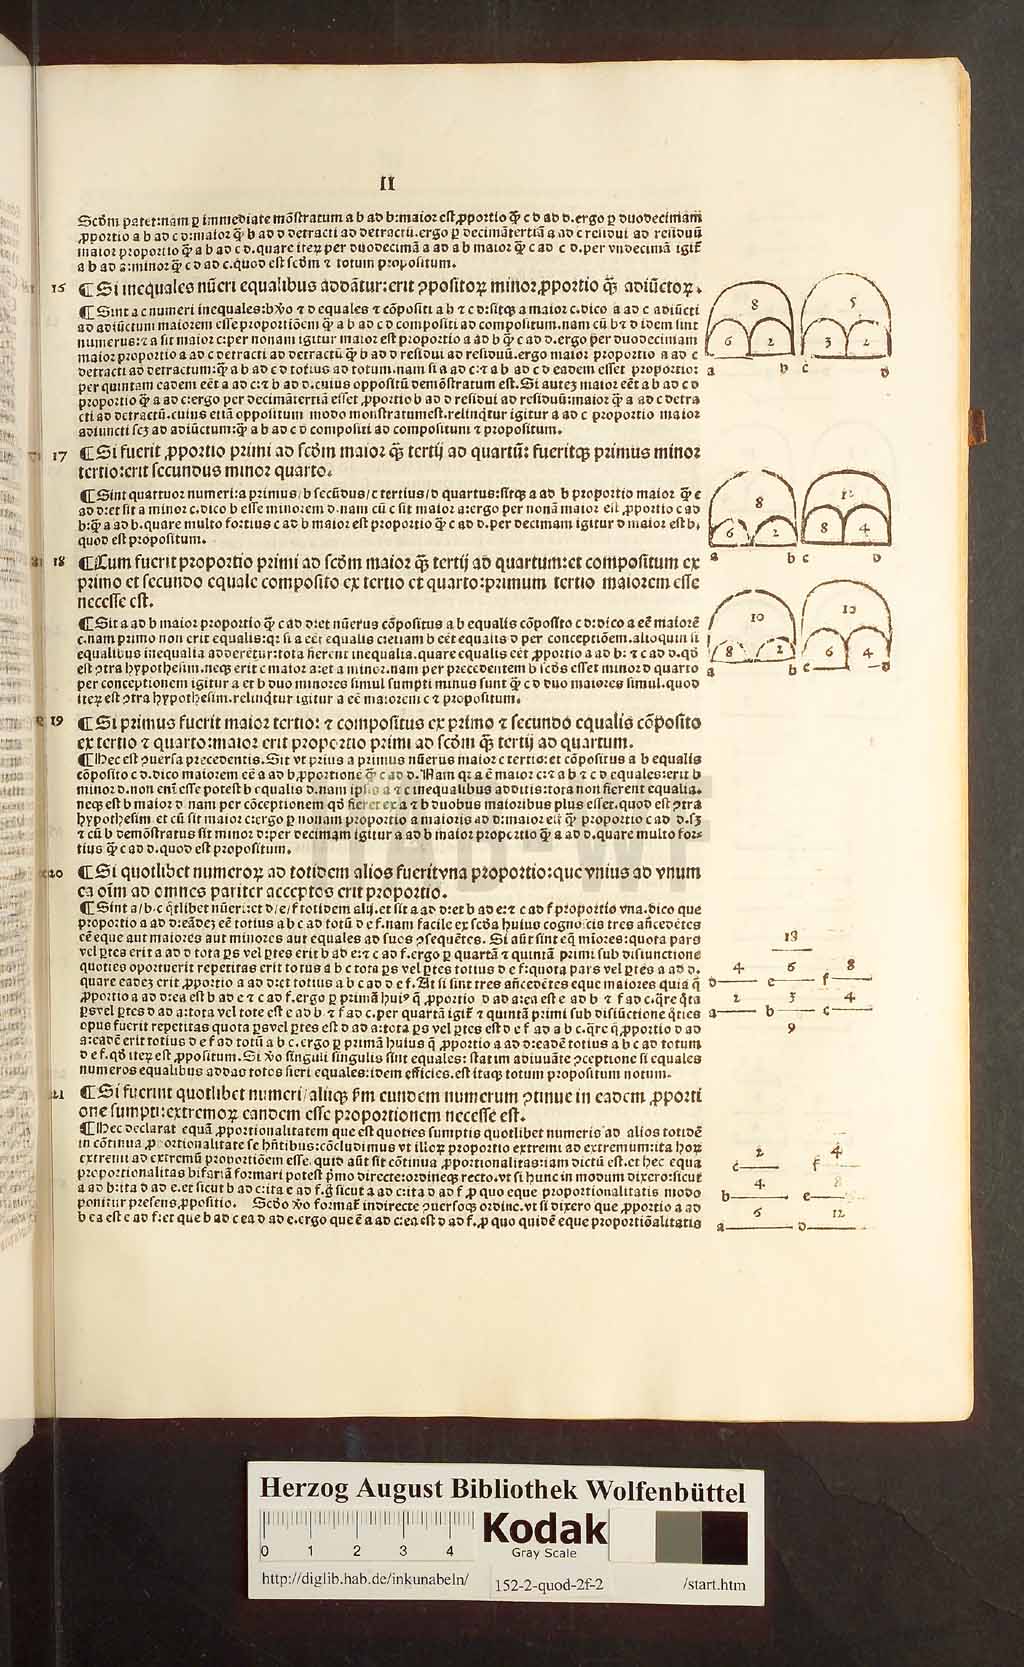 II
Scďm patet:nam ꝑ immediate mōstratum a b ad b:maior est ꝓportio q̄ȝ c d ad d.ergo ꝑ duodecimam
ꝓportio a b ad c d:maior q̄ȝ b ad d detracti ad detractū.ergo ꝑ decimātertiā a ad c residui ad residuū
maior proportio q̄ȝ a b ad c d.quare iteꝝ per duodecimā a ad a b maior q̄ȝ c ad c d.per vndecimā igit̄
a b ad a:minor q̄ȝ c d ad c.quod est scďm ⁊ totum propositum.
16 ¶ Si inequales nūeri equalibus addātur:erit ꝯpositoꝝ minor ꝓportio q̄ȝ adiūctoꝝ.
¶ Sint a c numeri inequales:b v̊o ⁊ d equales ⁊ cōpositi a b ⁊ c d:sitqȝ a maior c.dico a ad c adiūcti
ad adiūctum maiorem esse proportiōem q̄ȝ a b ad c d compositi ad compositum.nam cū b ⁊ d idem sint
numerus:⁊ a sit maior c:per nonam igitur maior est proportio a ad b q̄ȝ c ad d.ergo per duodecimam
maior proportio a ad c detracti ad detractū q̄ȝ b ad d residui ad residuū.ergo maior proportio a ad c
detracti ad detractum:q̄ȝ a b ad c d totius ad totum.nam si a ad c:⁊ a b ad c d eadem esset proportio:
per quintam eadem eēt a ad c:⁊ b ad d.cuius oppositū demōstratum est.Si auteȝ maior eēt a b ad c d
proportio q̄ȝ a ad c:ergo per decimātertiā esset ꝓportio b ad d residui ad residuū:maior q̄ȝ a ad c detra
cti ad detractū.cuius etiā oppositum modo monstratumest.relinq̄tur igitur a ad c proportio maior
adiuncti scȝ ad adiūctum:q̄ȝ a b ad c d compositi ad compositum ⁊ propositum.
17 ¶ Si fuerit ꝓportio primi ad scďm maior q̄ȝ tertij ad quartū: fueritqȝ primus minor
tertio:erit secundus minor quarto.
¶ Sint quattuor numeri:a primus/b secūdus/c tertius/d quartus:sitqȝ a ad b proportio maior q̄ȝ c
ad d:et sit a minor c.dico b esse minorem d.nam cū c sit maior a:ergo per nonā maior est ꝓportio c ad
b:q̄ȝ a ad b.quare multo fortius c ad b maior est proportio q̄ȝ c ad d.per decimam igitur d maior est b,
quod est propositum.
18 ¶ Cum fuerit proportio primi ad scďm maior q̄ȝ tertij ad quartum:et compositum ex
primo et secundo equale composito ex tertio et quarto:primum tertio maiorem esse
necesse est.
¶ Sit a ad b maior proportio q̄ȝ c ad d:et nūerus cōpositus a b equalis cōposito c d:dico a eē maiorē
c.nam primo non erit equalis:qȝ si a eēt equalis c:etiam b eēt equalis d per conceptiōem.alioquin si
equalibus inequalia adderētur:tota fierent inequalia.quare equalis eēt ꝓportio a ad b: ⁊ c ad d.qď
est ꝯtra hypothesim.neqȝ erit c maior a:et a minor.nam per precedentem b scďs esset minor d quarto
per conceptionem igitur a et b duo minores simul sumpti minus sunt q̄ȝ c d duo maiores simul.quod
iteꝝ est ꝯtra hypothesim.relinq̄tur igitur a eē maiorem c ⁊ propositum.
19 ¶ Si primus fuerit maior tertio: ⁊ compositus ex primo ⁊ secundo equalis cōposito
ex tertio ⁊ quarto:maior erit proportio primi ad scďm q̄ȝ tertij ad quartum.
¶ Hec est ꝯuersa precedentis.Sit vt prius a primus nūerus maior c tertio:et cōpositus a b equalis
cōposito c d.dico maiorem eē a ad b ꝓportionē q̄ȝ c ad d.Nam qȝ a ē maior c:⁊ a b ⁊ c d equales:erit b
minor d.non eni̅ esse potest b equalis d.nam ipsis a ⁊ c inequalibus additis:tota non fierent equalia.
neqȝ est b maior d nam per cōceptionem qď fieret ex a ⁊ b duobus maioribus plus esset.quod est ꝯtra
hypothesim et cū sit maior c:ergo ꝑ nonam proportio a maioris ad d:maior est q̄ȝ proportio c ad d.sȝ
⁊ cū b demōstratus sit minor d:per decimam igitur a ad b maior proportio q̄ȝ a ad d.quare multo for-
tius q̄ȝ c ad d.quod est propositum.
20 ¶ Si quotlibet numeroꝝ ad totidem alios fuerit vna proportio:que vnius ad vnum
ea oīm ad omnes pariter acceptos erit proportio.
¶ Sint a/b/c q̄tlibet nūeri:et d/e/f totidem alij.et sit a ad d:et b ad e:⁊ c ad f proportio vna.dico que
proportio a ad d:eādeȝ eē totius a b c ad totū d e f.nam facile ex scďa huius cognoscis tres añcedētes
eē eque aut maiores aut minores aut equales ad suos ꝯsequētes. Si aūt sint eq̄ miores:quota pars
vel ꝑtes erit a ad d tota ꝑs vel ꝑtes erit b ad e:⁊ c ad f.ergo ꝑ quartā ⁊ quintā primi sub disiunctione
quoties oportuerit repetitas erit totus a b c tota ꝑs vel ꝑtes totius d e f:quota pars vel ꝑtes a ad d.
quare eadeȝ erit ꝓportio a ad d:et totius a b c ad d e f. At si sint tres añcedētes eque maiores quia q̄
ꝓportio a ad d:ea est b ad e ⁊ c ad f.ergo ꝑ primā huiꝰ q̄ ꝓportio d ad a:ea est e ad b ⁊ f ad c.q̄re q̄ta
ꝑs vel ꝑtes d ad a:tota vel tote est e ad b ⁊ f ad c.per quartā igit̄ ⁊ quintā primi sub disiūctione q̄ties
opus fuerit repetitas quota ꝑs vel ꝑtes est d ad a:tota ꝑs vel ꝑtes est d e f ad a b c.q̄re q̄ ꝓportio d ad
a:eadē erit totius d e f ad totū a b c.ergo ꝑ primā huius q̄ ꝓportio a ad d:eadē totius a b c ad totum
d e f.qď iteꝝ est ꝓpositum.Si v̊o singuli singulis sint equales:statim adiuuāte ꝯceptione si equales
numeros equalibus addas totos fieri equales:idem efficies.est itaqȝ totum propositum notum.
21 ¶ Si fuerint quotlibet numeri/aliiqȝ ẜm eundem numerum ꝯtinue in eadem ꝓporti
one sumpti:extremoꝝ eandem esse proportionem necesse est.
¶ Hec declarat equā ꝓportionalitatem que est quoties sumptis quotlibet numeris ad alios totidē
in cōtinua ꝓportionalitate se hñtibus:cōcludimus vt illoꝝ proportio extremi ad extremum:ita hoꝝ
extremi ad extremū proportiōem esse.quid aūt sit cōtinua ꝓportionalitas:iam dictū est.et hec equa
proportionalitas bifariā formari potest p̄mo directe:ordineqȝ recto.vt si hunc in modum dixero:sicut
a ad b:ita d ad e.et sicut b ad c:ita e ad f.q̊ sicut a ad c:ita d ad f.ꝓ quo eque proportionalitatis modo
ponitur presens ꝓpositio. Scďo v̊o format̄ indirecte ꝯuersoqȝ ordine.vt si dixero que ꝓportio a ad
b ea est e ad f:et que b ad c ea d ad e.ergo que ē a ad c:ea est d ad f.ꝓ quo quidē eque proportiōalitatis
8 5
6 2 3 2
a b c d
8 12
6 2 8 4
a b c d
10 10
8 2 6 4
a b c d
18
4 6 8
d e f
2 3 4
a b c
9
2 4
c f
4 8
b e
6 12
a d
Herzog August Bibliothek Wolfenbüttel
0 1 2 3 4
Kodak
Gray Scale
http://diglib.hab.de/inkunabeln/
152-2-quod-2f-2
/start.htm